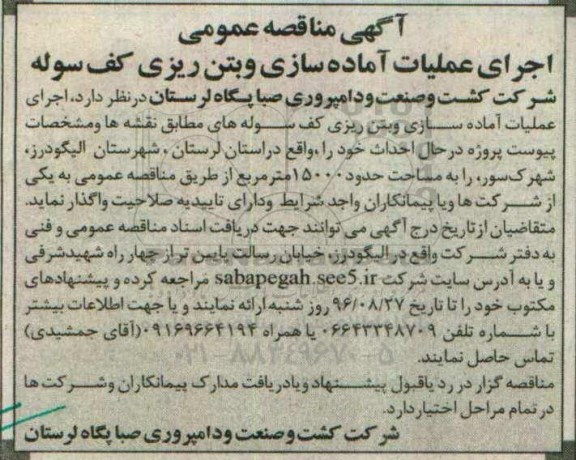 آگهی مناقصه عمومی
اجرای عملیات آماده سازی وبتن ریزی کف سوله
شرکت کشت وصنعت ودامپروری صبا پگاه لرستان درنظر دارد،اجرای
عملیات آماده سازی وبتن ریزی کف سوله های مطابق نقشه ها ومشخصات
پیوست پروژه درحال احداث خود را ،واقع دراستان لرستان ، شهرستان الیگودرز،
شهرک سور، را به مساحت حدود ۱۵۰۰۰مترمربع از طریق مناقصه عمومی به یکی
از شرکت ها ویا پیمانکاران واجد شرایط ودارای تاییدیه صلاحیت واگذار نماید.
متقاضیان ازتاریخ درج آگهی می توانند جهت دریافت اسناد مناقصه عمومی و فنی
به دفتر شرکت واقع در الیگودرز، خیابان رسالت پایین تر از چهار راه شهیدشرفی
و یا به آدرس سایت شرکت sabapegah.see5.ir مراجعه کرده و پیشنهادهای
مکتوب خود را تا تاریخ ۹۶/۰۸/۲۷ روز شنبه ارائه نمایند و یا جهت اطلاعات بیشتر
با شماره تلفن ۰۶۶۴۳۳۴۸۷۰۹ یا همراه ۰۹۱۶۹۶۶۴۱۹۴(آقای جمشیدی)
تماس حاصل نمایند.
مناقصه گزار در رد یاقبول پیشنهاد ویادریافت مدارک پیمانکاران وشرکت ها
در تمام مراحل اختیار دارد.
شرکت کشت وصنعت ودامپروری صبا پگاه لرستان
۰۲۱-۸۸۳۴۹۶۷۰-۵